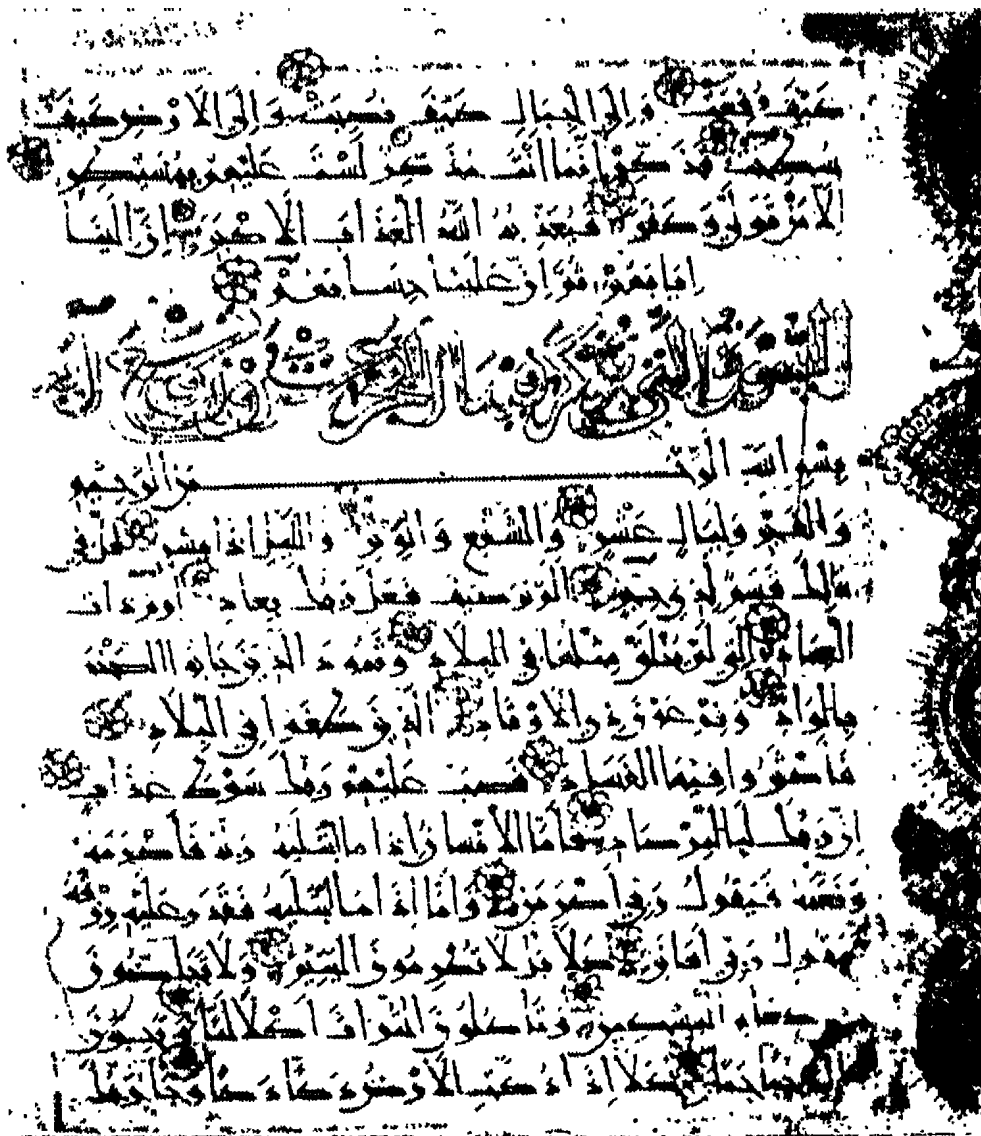 كيف رفعت وإلى الجبال كيف نصبت وإلى الأرض كيف
سطحت فذكر إنما أنت مذكر لست عليهم بمصيطر
إلا من تولى وكفر فيعذبه الله العذاب الأكبر إن إلينا
إيابهم ثم إن علينا حسابهم
بسم الله الرحمن الرحيم
والفجر وليال عشر والشفع والوتر والليل إذا يسر هل في
ذلك قسم لذي حجر ألم تر كيف فعل ربك بعاد إرم ذات
العماد التي لم يخلق مثلها في البلاد وثمود الذين جابوا الصخر
بالواد وفرعون ذي الأوتاد الذين طغوا في البلاد
فأكثروا فيها الفساد فصب عليهم ربك سوط عذاب
إن ربك لبالمرصاد فأما الإنسان إذا ما ابتليه ربه فأكرمه
ونعمه فيقول ربي أكرمن وأما إذا ما ابتليه فقدر عليه رزقه
فيقول ربي أهانن كلا بل لا تكرمون اليتيم ولا تحاضون
على طعام المسكين وتأكلون التراث أكلا لما وتحبون
المال حبا جما كلا إذا دكت الأرض دكا دكا وجاء ربك